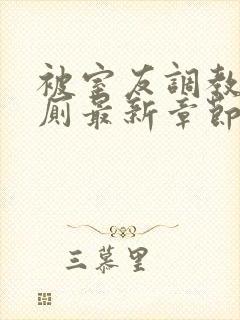 被室友調教
廁最新章節
三慕里